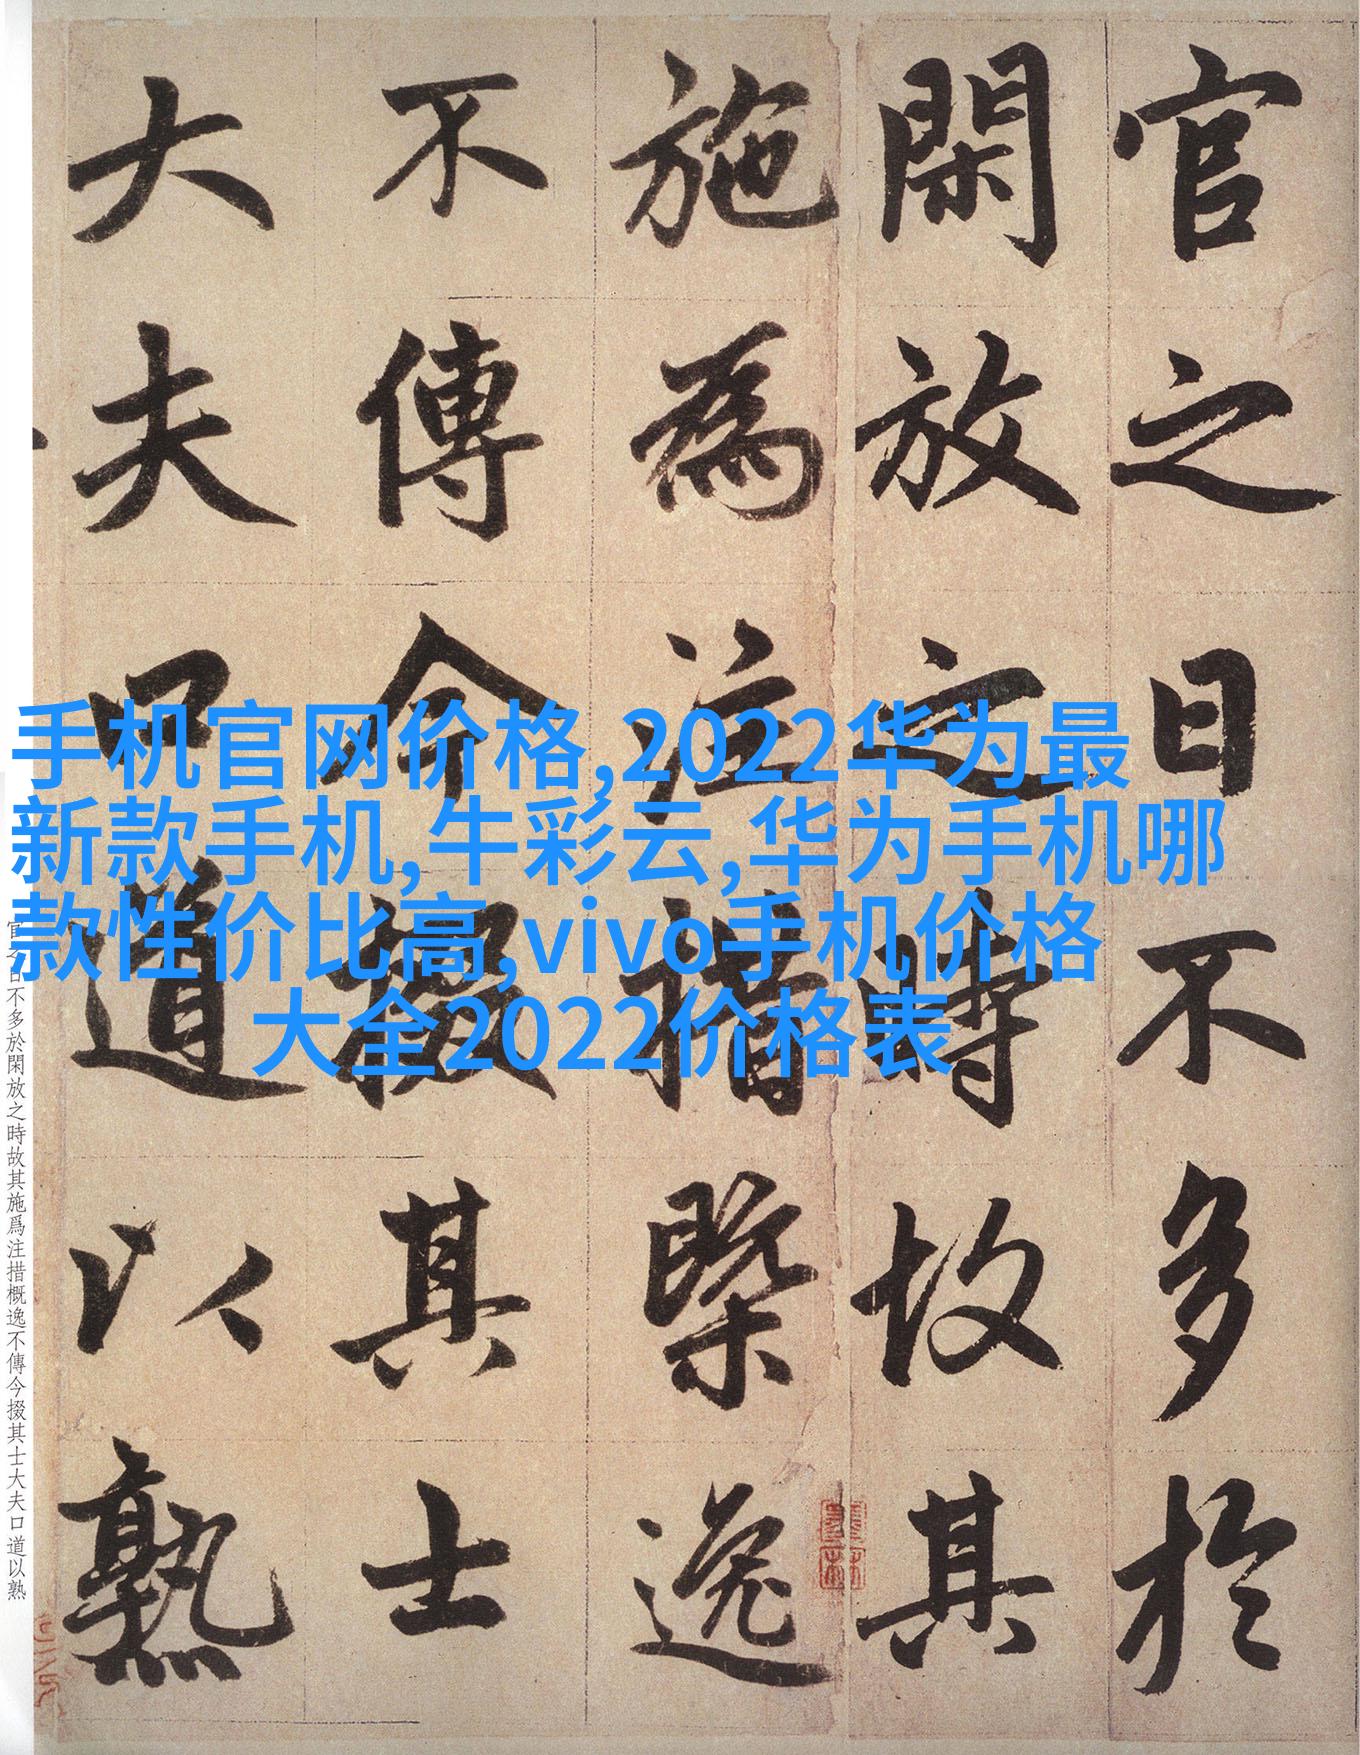 官之日不多於
閑放之時故其
施為注措槩逸
不傳今掇其士
大夫口道以熟
官之日不多於閑放之時故其施爲注措概逸不傳今掇其士大夫口道以熟
手机官网价格,2022华为最
新款手机,牛彩云,华为手机哪
款性价比高,vivo手机价格
大全2022价格表